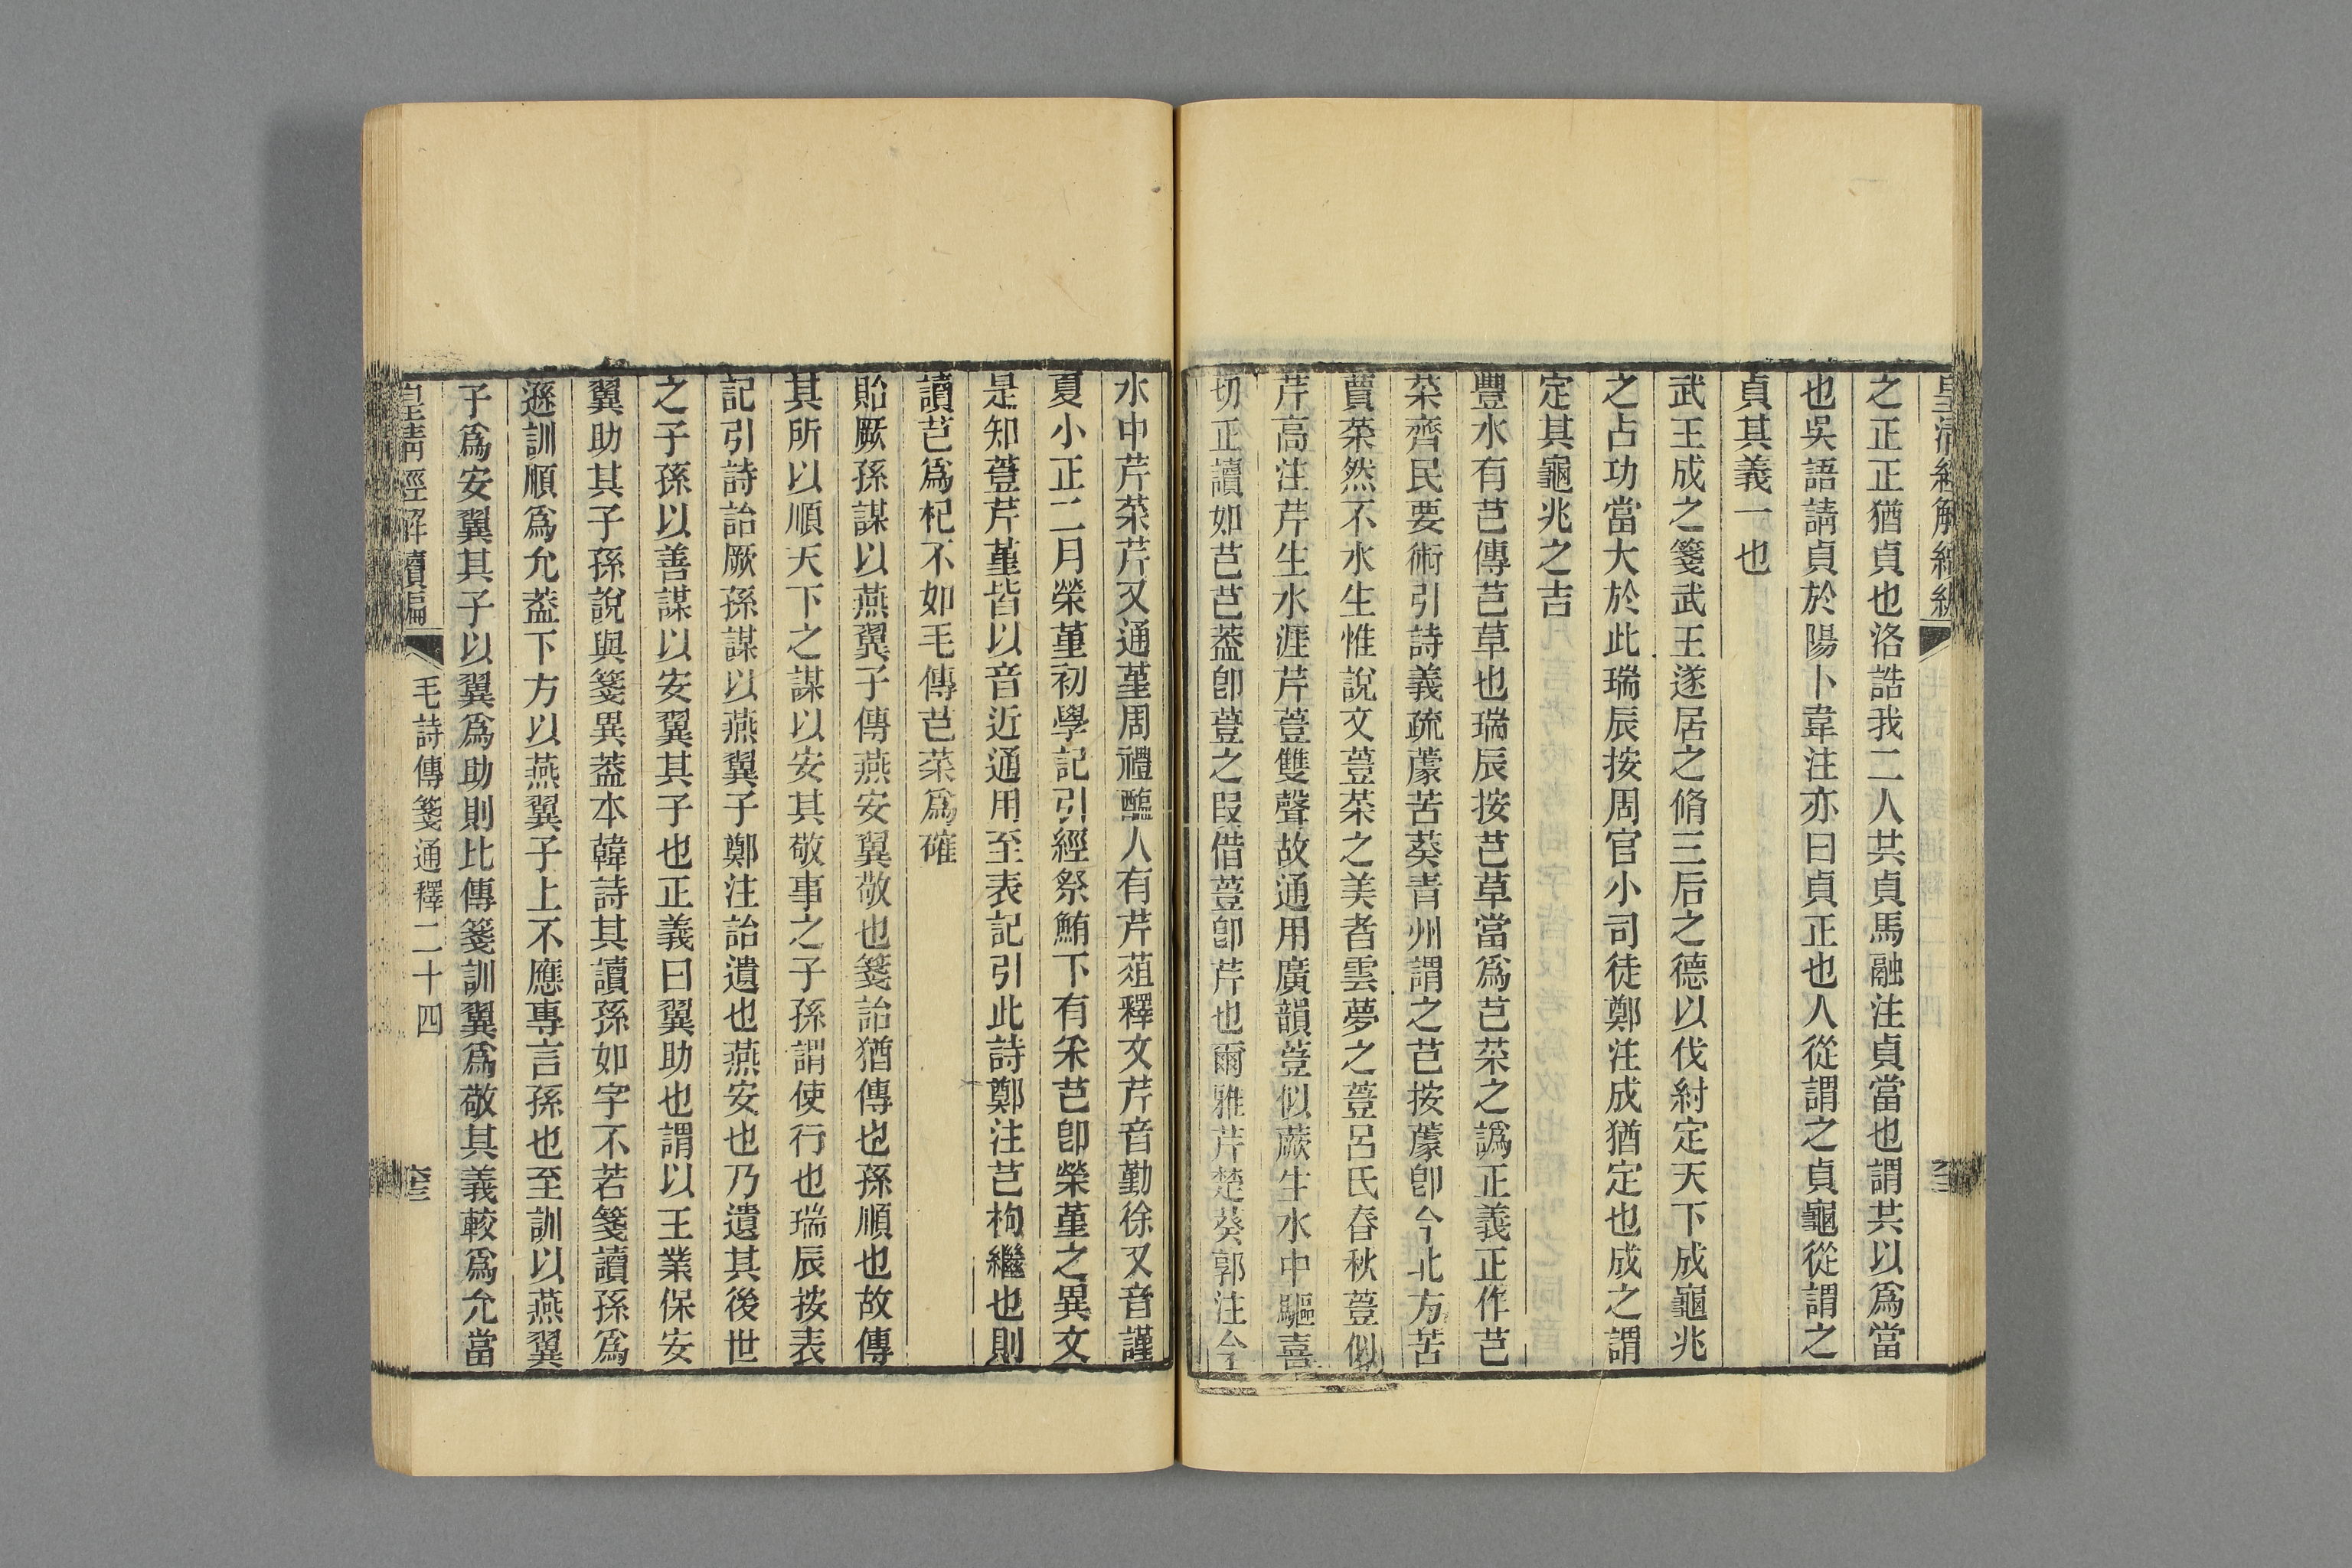 皇清經解續編
之正正猶貞也洛誥我二人共貞馬融注貞當也謂共以爲當
也吳語請貞於陽卜韋注亦曰貞正也人從謂之貞龜從謂之
貞其義一也
武王成之箋武王遂居之脩三后之德以伐紂定天下成龜兆
之占功當大於此瑞辰按周官小司徒鄭注成猶定也成之謂
定其龜兆之吉
豐水有芑傳芑草也瑞辰按芑草當爲芑菜之譌正義正作芑
菜齊民要術引詩義疏蘪苦葵青州謂之芑按蘪卽今北方苦
蕒菜然不水生惟說文薹菜之美者雲夢之薹呂氏春秋薹似
芹高注芹生水涯芹薹雙聲故通用廣韻薹似蕨生水中驅喜
切正讀如芑芑葢卽薹之叚借薹卽芹也爾雅芹楚葵郭注今
水中芹菜芹又通堇周禮醢人有芹菹釋文芹音勤徐又音謹
夏小正二月榮堇初學記引經祭鮪下有采芑卽榮堇之異文
是知薹芹堇皆以音近通用至表記引此詩鄭注芑枸檵也則
讀芑爲杞不如毛傳芑菜爲確
貽厥孫謀以燕翼子傳燕安翼敬也箋詒猶傳也孫順也故傳
其所以順天下之謀以安其敬事之子孫謂使行也瑞辰按表
記引詩詒厥孫謀以燕翼子鄭注詒遺也燕安也乃遺其後世
之子孫以善謀以安翼其子也正義曰翼助也謂以王業保安
翼助其子孫說與箋異葢本韓詩其讀孫如字不若箋讀孫爲
遜訓順爲允葢下方以燕翼子上不應專言孫也至訓以燕翼
子爲安翼其子以翼爲助則比傳箋訓翼爲敬其義較爲允當
皇清經解續編
毛詩傳箋通釋二十四